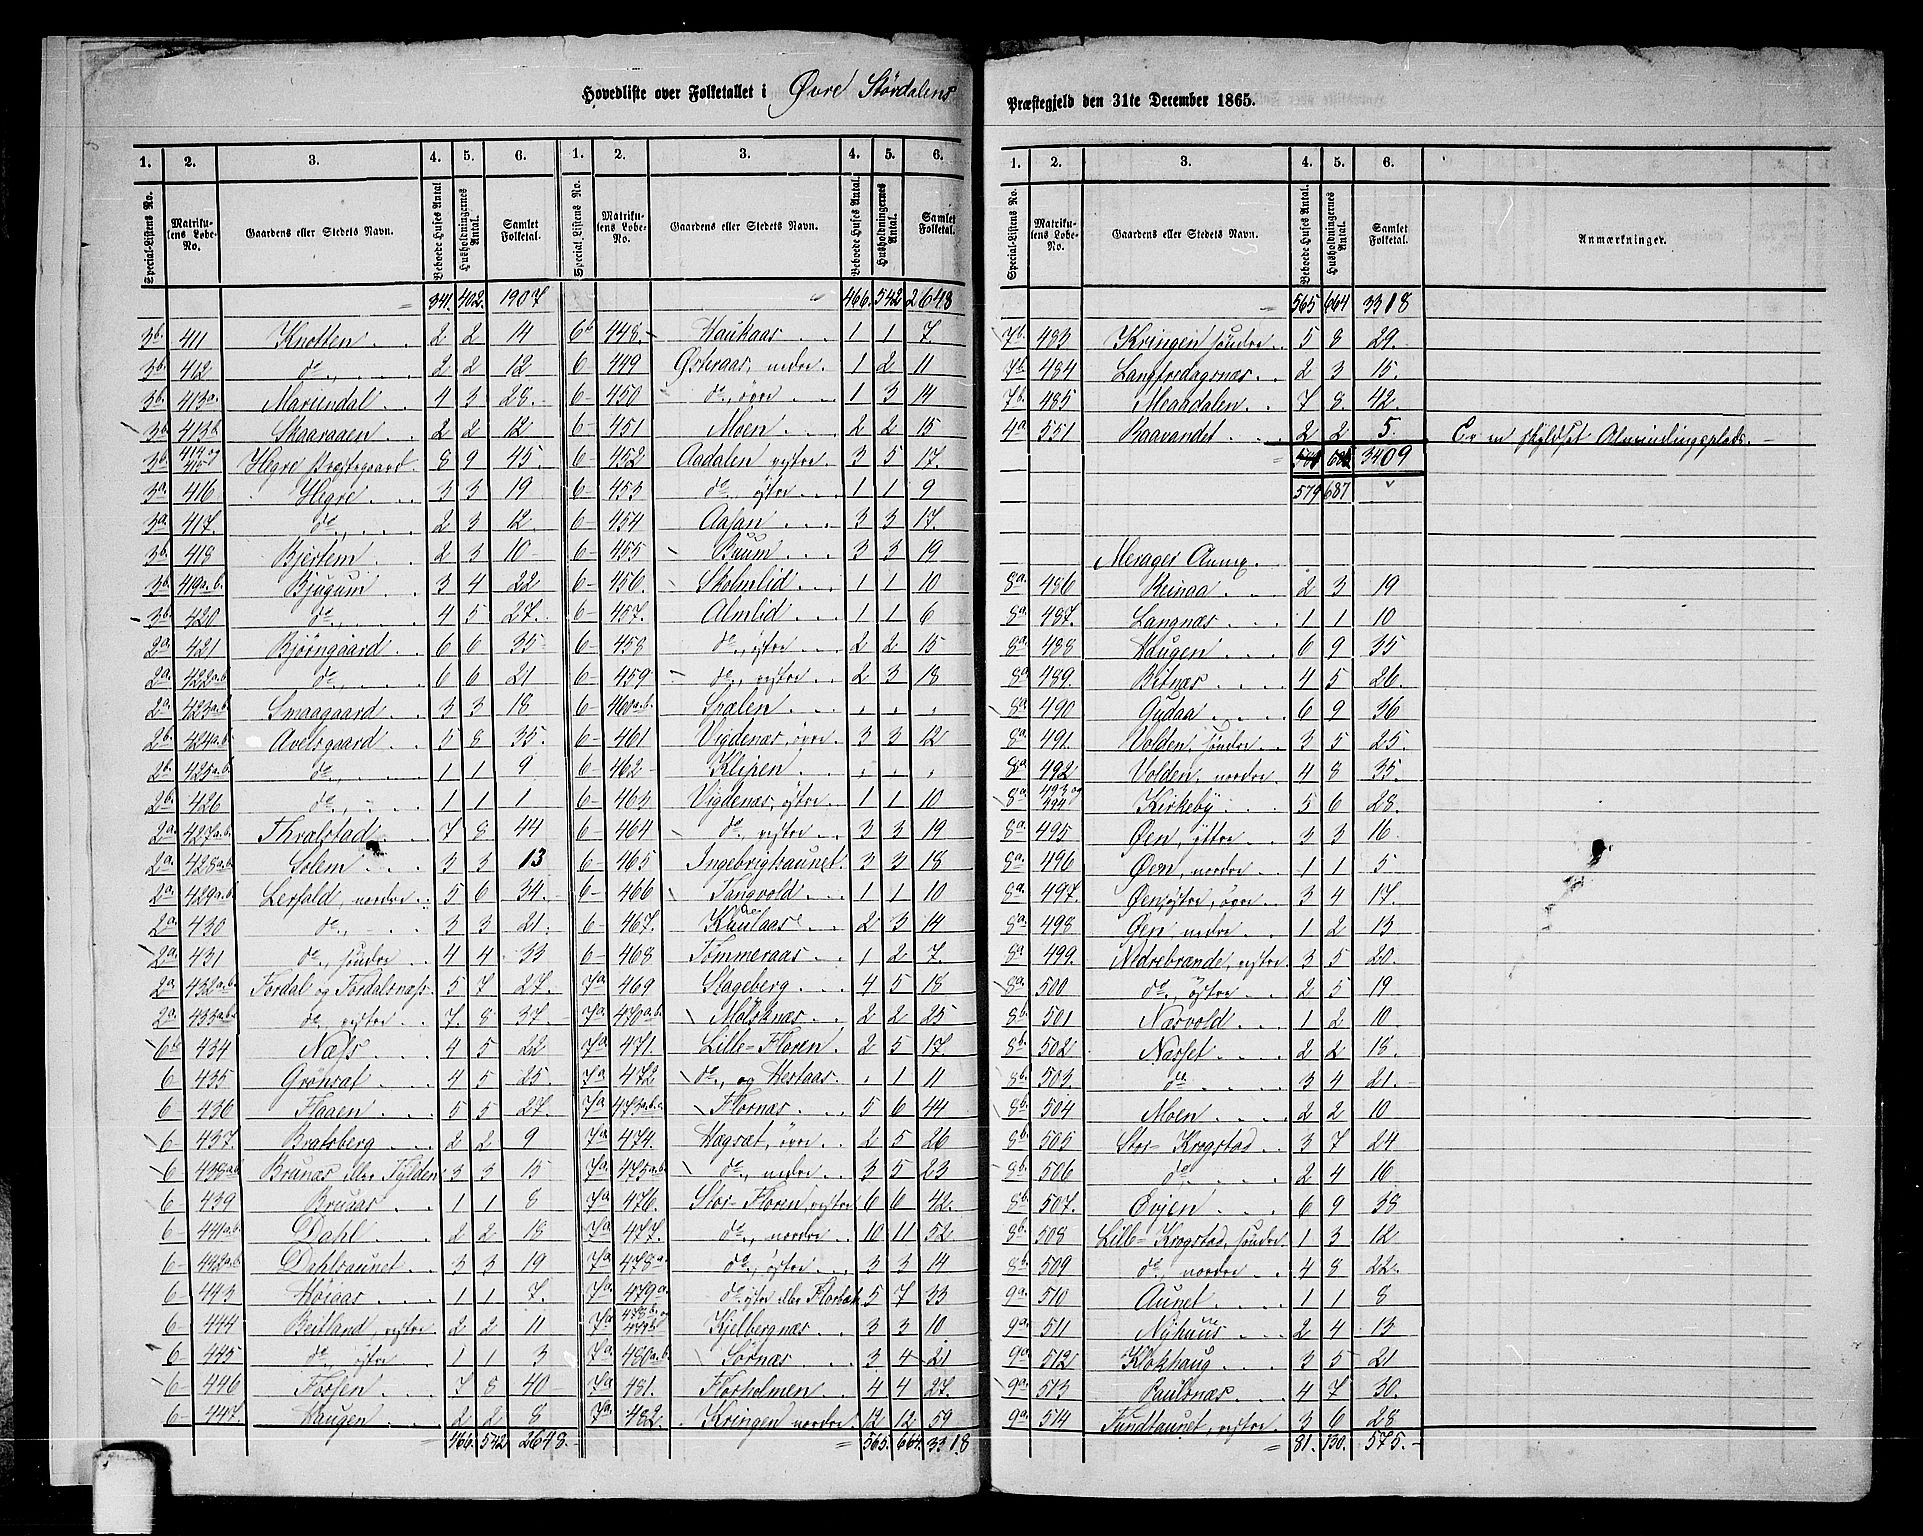 Hovedliste over Folketallet i Øvre Størdalens
Præstegjeld den 31te December 1865.
1. 2. 3. 4. 5. 6.
Special-Listens No. Matrikulens Løbe-No. Gaardens eller Stedets Navn. Beboede Huses Antal Husholdningernes Antal. Samlet Folketal.
= 341. 402. 1907
3b. 411 Knotten 2 2 14
3b. 412 do 2 2 12
3b. 413a. Marundal 4 3 28.
3b. 413b Skaaraaen 2 2 12
3b. 414 og 415 Hegre Præstegaard 8 9 45.
3a. 416 Hegre 3 3 19
3a. 417. do 2 3 12.
3b. 418 Bjertem 2 3 10
3b. 419a.b. Bjugum 3 4 22
3b. 420 do 4 5 27.
2a. 421 Bjørngaard 6 6 35
2a. 422a.b. do 6 6 21
2a. 423a.b. Smaagaard 3 3 18
2b. 424a.b. Avelsgaard 5 8 35.
2b. 425a.b. do 1 1 9
2b. 426 do 1 1 1
2a. 427a.b. Thralstad 7 8 44
2a. 428a.b. Solem 3 3 13
2a. 429a.b. Lerfald, nordre 5 6 34.
2a. 430 do 3 3 21.
2a. 431 do, søndre 4 4 33
2a. 432a.b. Fordal og Fordalsnæss. 5 7 27.
2a. 433a.b. do vestre 7. 8 37.
6 434 Næss 4 5 22
6 435 Grönsat 4 5 25.
6 436 Flaaen 5 5 27.
6 437 Bratsberg 2 2 9
6 438a.b. Brunæs eller Fylden 3 3 15
6 439 Brunæs 1 1 8
6- 441a.b. Dahl 2 2 18
6- 442a.b. Dahlsaunet 3 3 19
6 443 Høiaas 1 1 7.
6- 444 Beitland, vestre 2 2 11
6- 445 do østre 1 1 3
6- 446 Forsen 7 8 40
6- 447. Haugen 2 2 8
= 466. 542 2648.
1. 2. 3. 4. 5. 6.
Special-Listens No. Matrikulens Løbe-No. Gaardens eller Stedets Navn. Beboede Huses Antal. Husholdningernes Antal. Samlet Folketal.
466. 542 2648
6b 448. Haukaas 1 1 7
6- 449 Østeraas, nedre. 1 2 11
6- 450 do, øvre 1 3 14
6- 451 Moen 2 2 15
6- 452 Aadalen vestre 3 5 17.
6- 453 do østre 1 1 9
6- 454 Aasan 3 3 17.
6- 455 Buum 3 3 19
6- 456. Skolmlid 1 1 10
6- 457. Almlid 1 1 6
6- 458 do, østre 2 2 15
6- 459 do, vestre 2 3 18
6- 460a.b. Svælen . . .
6- 461 Vigdenæs, øvre 3 3 12
6- 462 Klepen . . .
6- 463 Vigdenæs, østre 1 1 10
6- 464 do, vestre 3 3 19
6- 465 Ingebrigtsaunet. 3 3 18
6- 466 Tangvold 1 1 10
6- 467. 2 3 14
6- 468 Tømmeraas 1 2 7.
7a 469 Stageberg 4 5 18
7a 470a.b. Mölsknæs 2 2 25
7a 471. Lille-Floren 2 5 17.
7a 472 do, og Hestaas . 1 11
7a 473a.b.c. Flornæs 5 6 44
7a 474. Hægsæt, øvre 2 5 26
7a 475a.b. do, nedre 3 5 23
7a 476. Stor-Floren, vestre 6 6 42.
7a 477. do, nordre 10 11 52.
7a 478a. do, østre 3 3 14
7a 479a. do østre eller Florbæk 5 7 33
7a 478b. og 479b. Kjelbergnæs 3 3 10
7a 480a.b. Sornæs 3 4 21
7a 481. Florholmen 4 4 27.
7a. 482. Kringen nordre 12 12 59
= 565. 664. 3318
1. 2. 3. 4. 5. 6.
Special-Listens No. Matrikulens Løbe-No. Gaardens eller Stedets Navn. Beboede Huses Antal. Husholdningernes Antal. Samlet Folketal. Anmærkninger.
565 664 3318
7b. 483 Kringen søndre 5 8 29.
7b 484 Langfredagsnæs 2 3 15.
7b. 485 Meaadalen 7 8 42.
4a 551 Baavandet 2 2 5. Er en skyldsat Almindingsplads.
3409
579 687
Merager Annex.
8a 486 Reinaa 2 3 19
8a 487. Langnæs 1 1 10
8a. 488 Haugen 6 9 35
8a 489. Bitnæs 4 5 26.
8a 490 Gudaa 6 9 36
8a. 491. Volden, søndre 3 5 25.
8a 492 Volden, nordre 4 8 35.
8a 493 og 494 Kirkeby 5 6 28.
8a 495 Øen, østre 3 3 16
8a. 496 Øen, nordre 1 1 5
8a 497. Øen, østre, øvre 3 4 17.
8a 498 Øen, nedre 1 2 13
8a 499. Nedrebrande, vestre 3 5 20.
8a. 500 do, østre 2 5 19
8b. 501 Næsvold 1 2 10
8b. 502 Næsset 2 2 18.
8b. 503. do 3 4 21.
8b. 504 Moen 2 2 10
8b. 505 Stor-Krogstad 3 7 24
8b. 506 do 2 4 16
8b 507. Evjen 6 9 38
8b. 508 Lille-Krogstad, søndre. 1 3 12
8b 509 do, nordre 4 8 22.
9a 510 Aunet 1 1 8
9a. 511 Nyhuus 2 4 13
9a 512 Klokhaug 3 5 21
9a 513 Paulsnæs 4 7 30.
9a. 514 Fundtaunet, vestre 3 6 28
= 81. 130. 575.